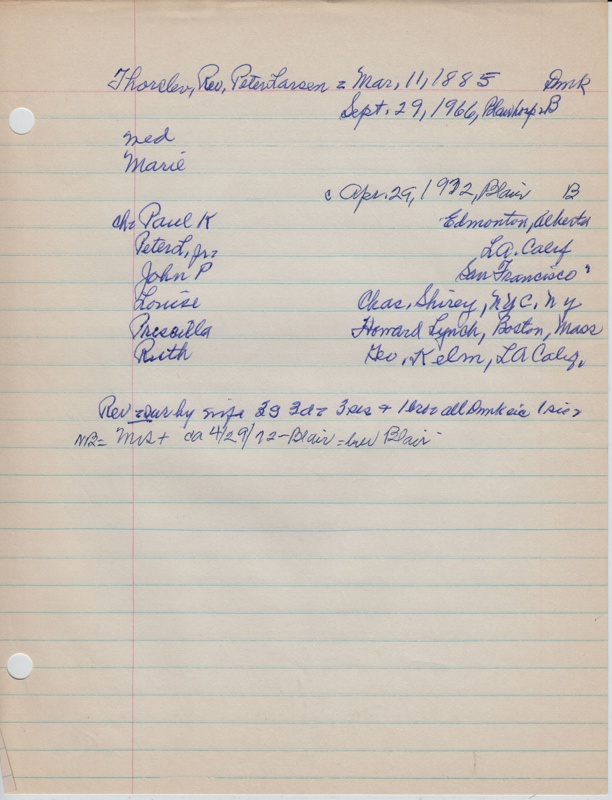 Thorslev, Rev, Peter Larsen = Mar, 11, 1885 Dmk
Sept. 29, 1966, Blair hosp = B
med
Marie
c Apr. 29, 1972, Blair B
ch = Paul K Edmonton, Alberta
Peter L, Jr. L.A. Calif
John P San Francisco "
Louise Chas, Shirey, NYC, NY
Priscilla Howard Lynch, Boston, Mass
Ruth Geo, Kelm, LA Calif,
Rev = sur by wife 3s 3d = 3 sis + 1 bro = all Dmk 1 sis
NB = Mrs + da 4/29/72 - Blair = bur Blair